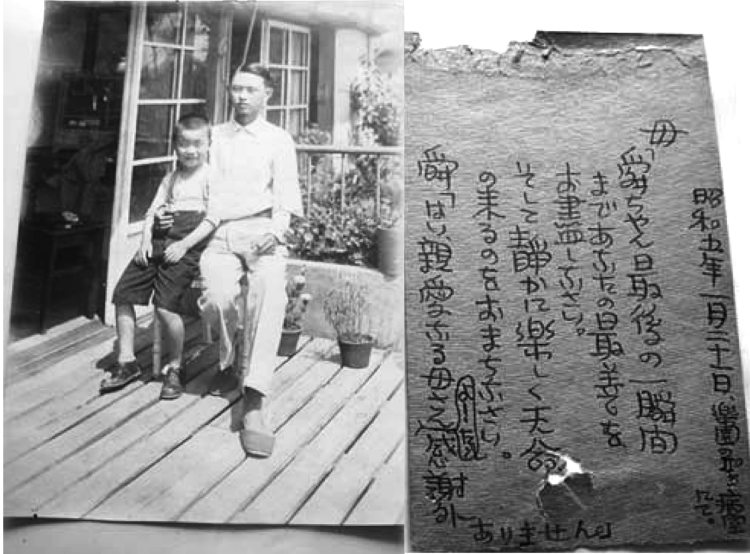 昭和五年一月二十一日、樂園の聖き病室にて。
母
「爵ちゃん最後の一瞬間
まであなたの最善を
お盡しなさい。
そして静かに楽しく天命
の来るのをおまちなさい。
爵「はい、親愛なる母さん感謝外
ありません」